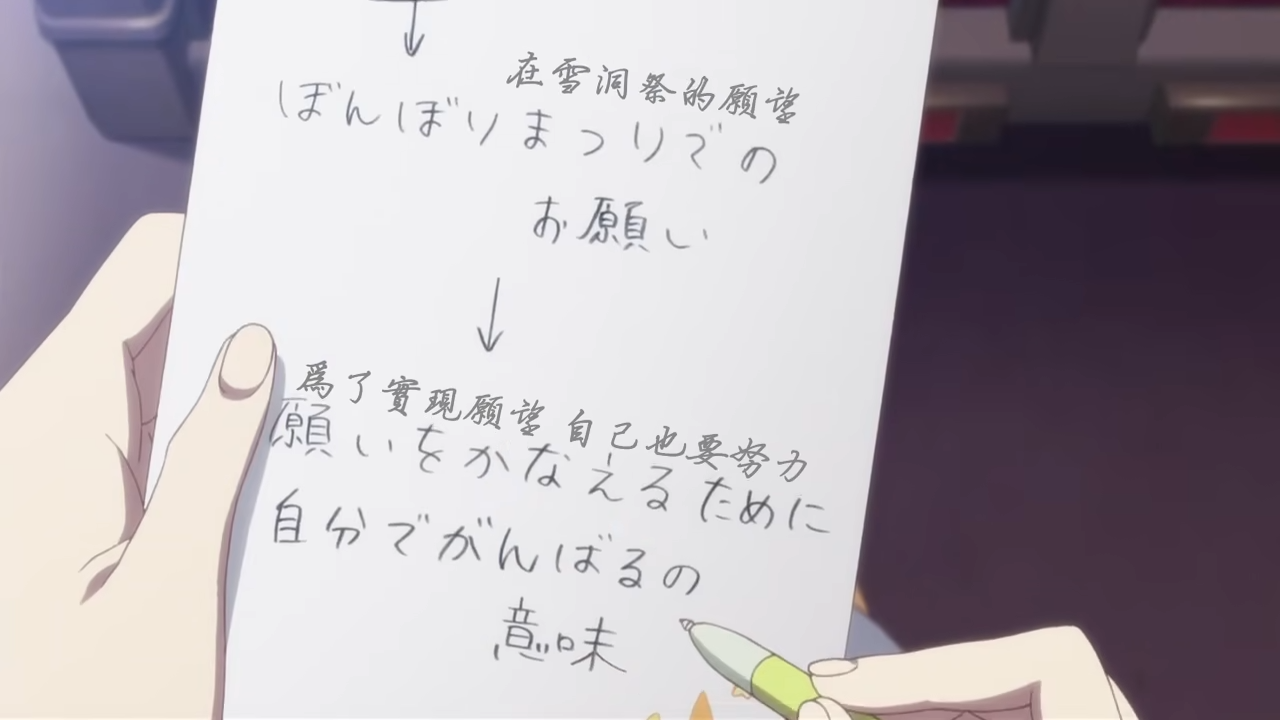 在雪洞祭的願望
ぼんぼりまつりでの
お願い
爲了實現願望 自己也要努力
願いをかなえるために
自分でがんばるの
意味